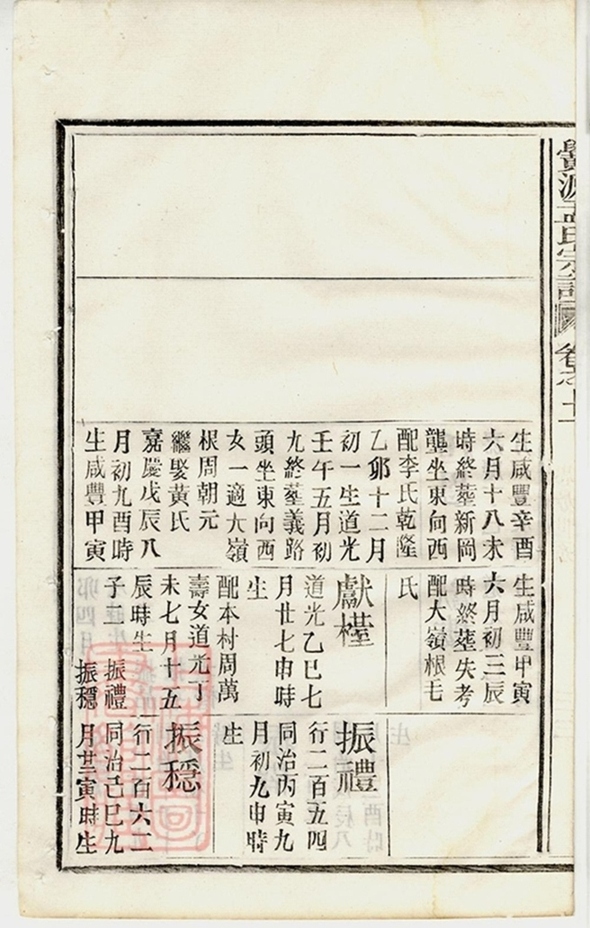 生咸豐辛酉
六月十八未
時終葬新岡
壟坐東向西
配李氏乾隆
乙卯十二月
初一生道光
壬午五月初
九終葬義路
頭坐東向西
女一適大嶺
根周朝元
繼娶黃氏
嘉慶戊辰八
月初九酉時
生咸豐甲寅
生咸豐甲寅
六月初三辰
時終葬失考
配大嶺根毛
氏
獻權
道光乙巳七
月廿七申時
生
配本村周萬
壽女道光丁
未七月十五
辰時生
子二 振禮
振穩
振禮
行二百五四
同治丙寅九
月初九申時
生
振穩
行二百六二
同治己巳九
月廿寅時生